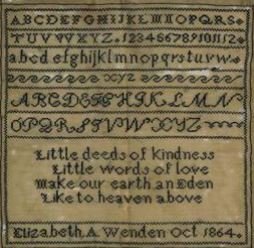 ABCDEFGHIJKLMNOPQRS
TUVWXYZ.123456789101112
abcdefghijklmnopqrstuvw
xyz
ABCDEFGHIJKLMN
OPQRSTVWXYZ
Little deeds of kindness
Little words of love
Make our earth an Eden
Like to heaven above
Elizabeth A Wenden Oct 1864.